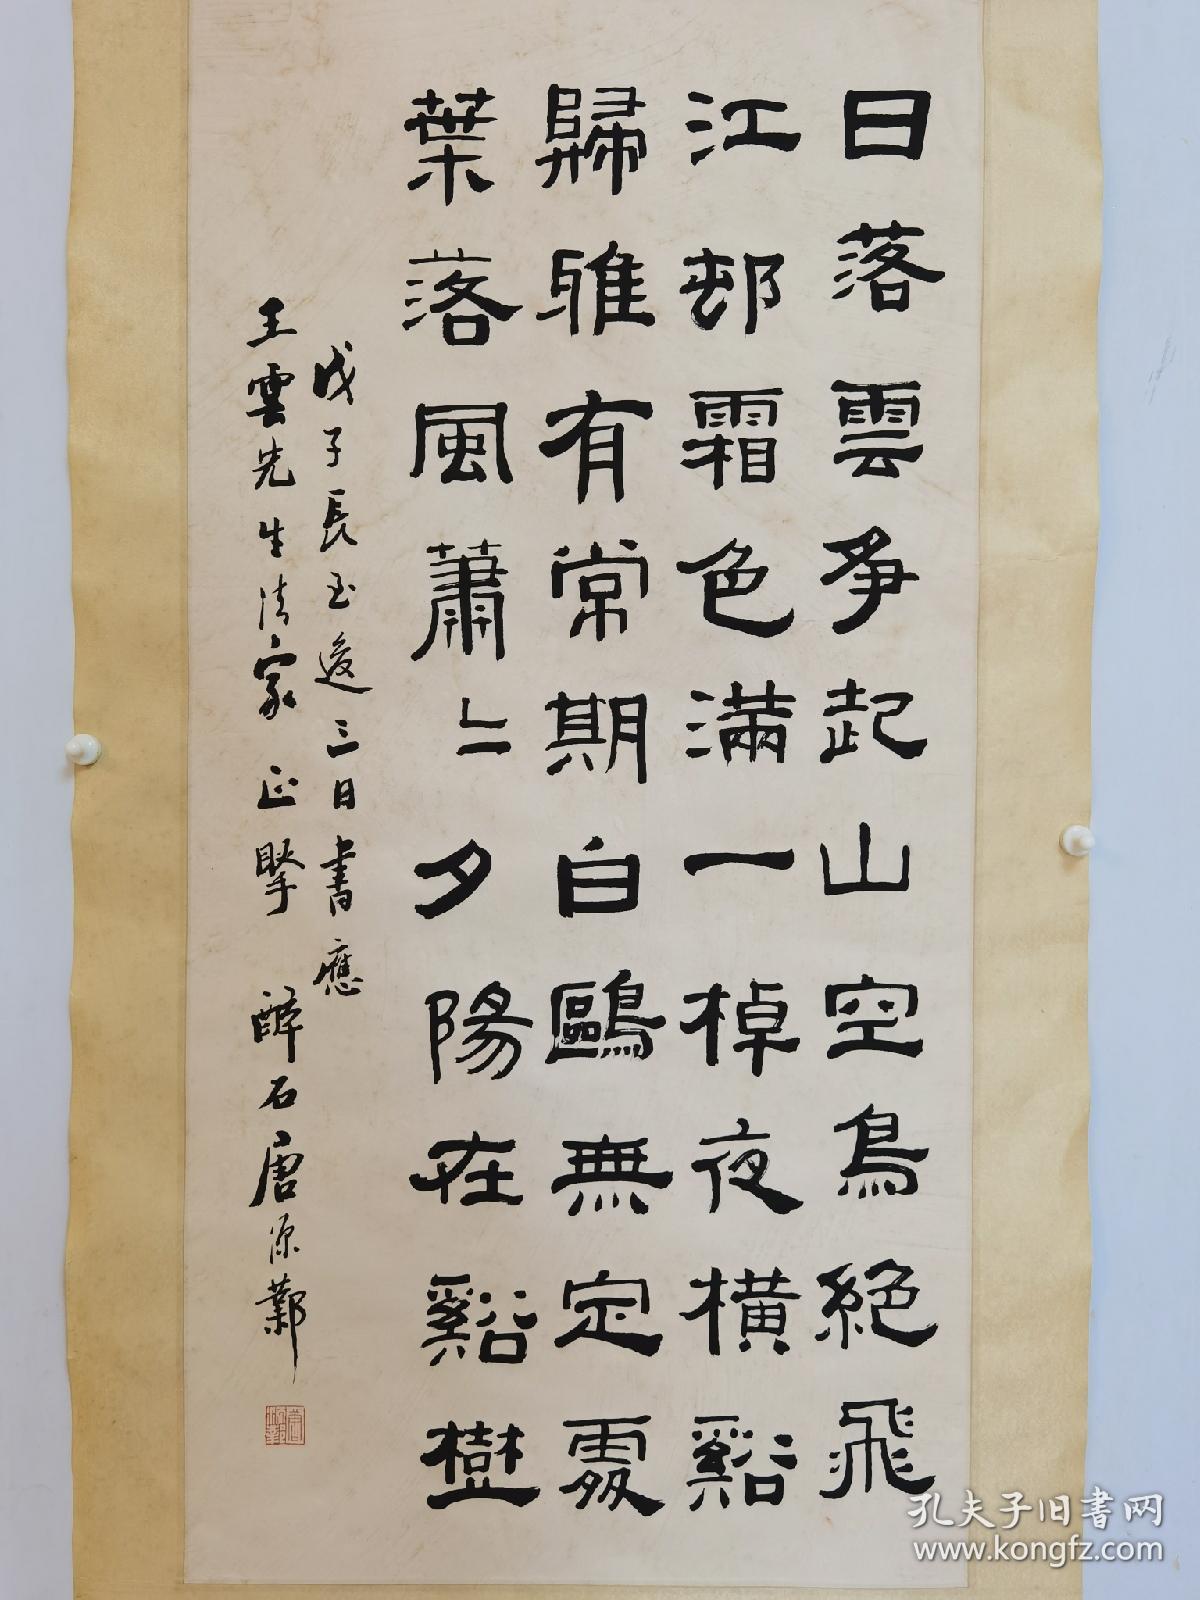 日落雲爭起山空鳥絕飛
江邨霜色滿一棹夜橫谿
歸雅有常期白鷗無定處
葉落風蕭〻夕陽在谿樹
戊子長至後三日書應
王雲先生法家正擘 醉石唐源鄴
孔夫子旧書网
www.kongfz.com